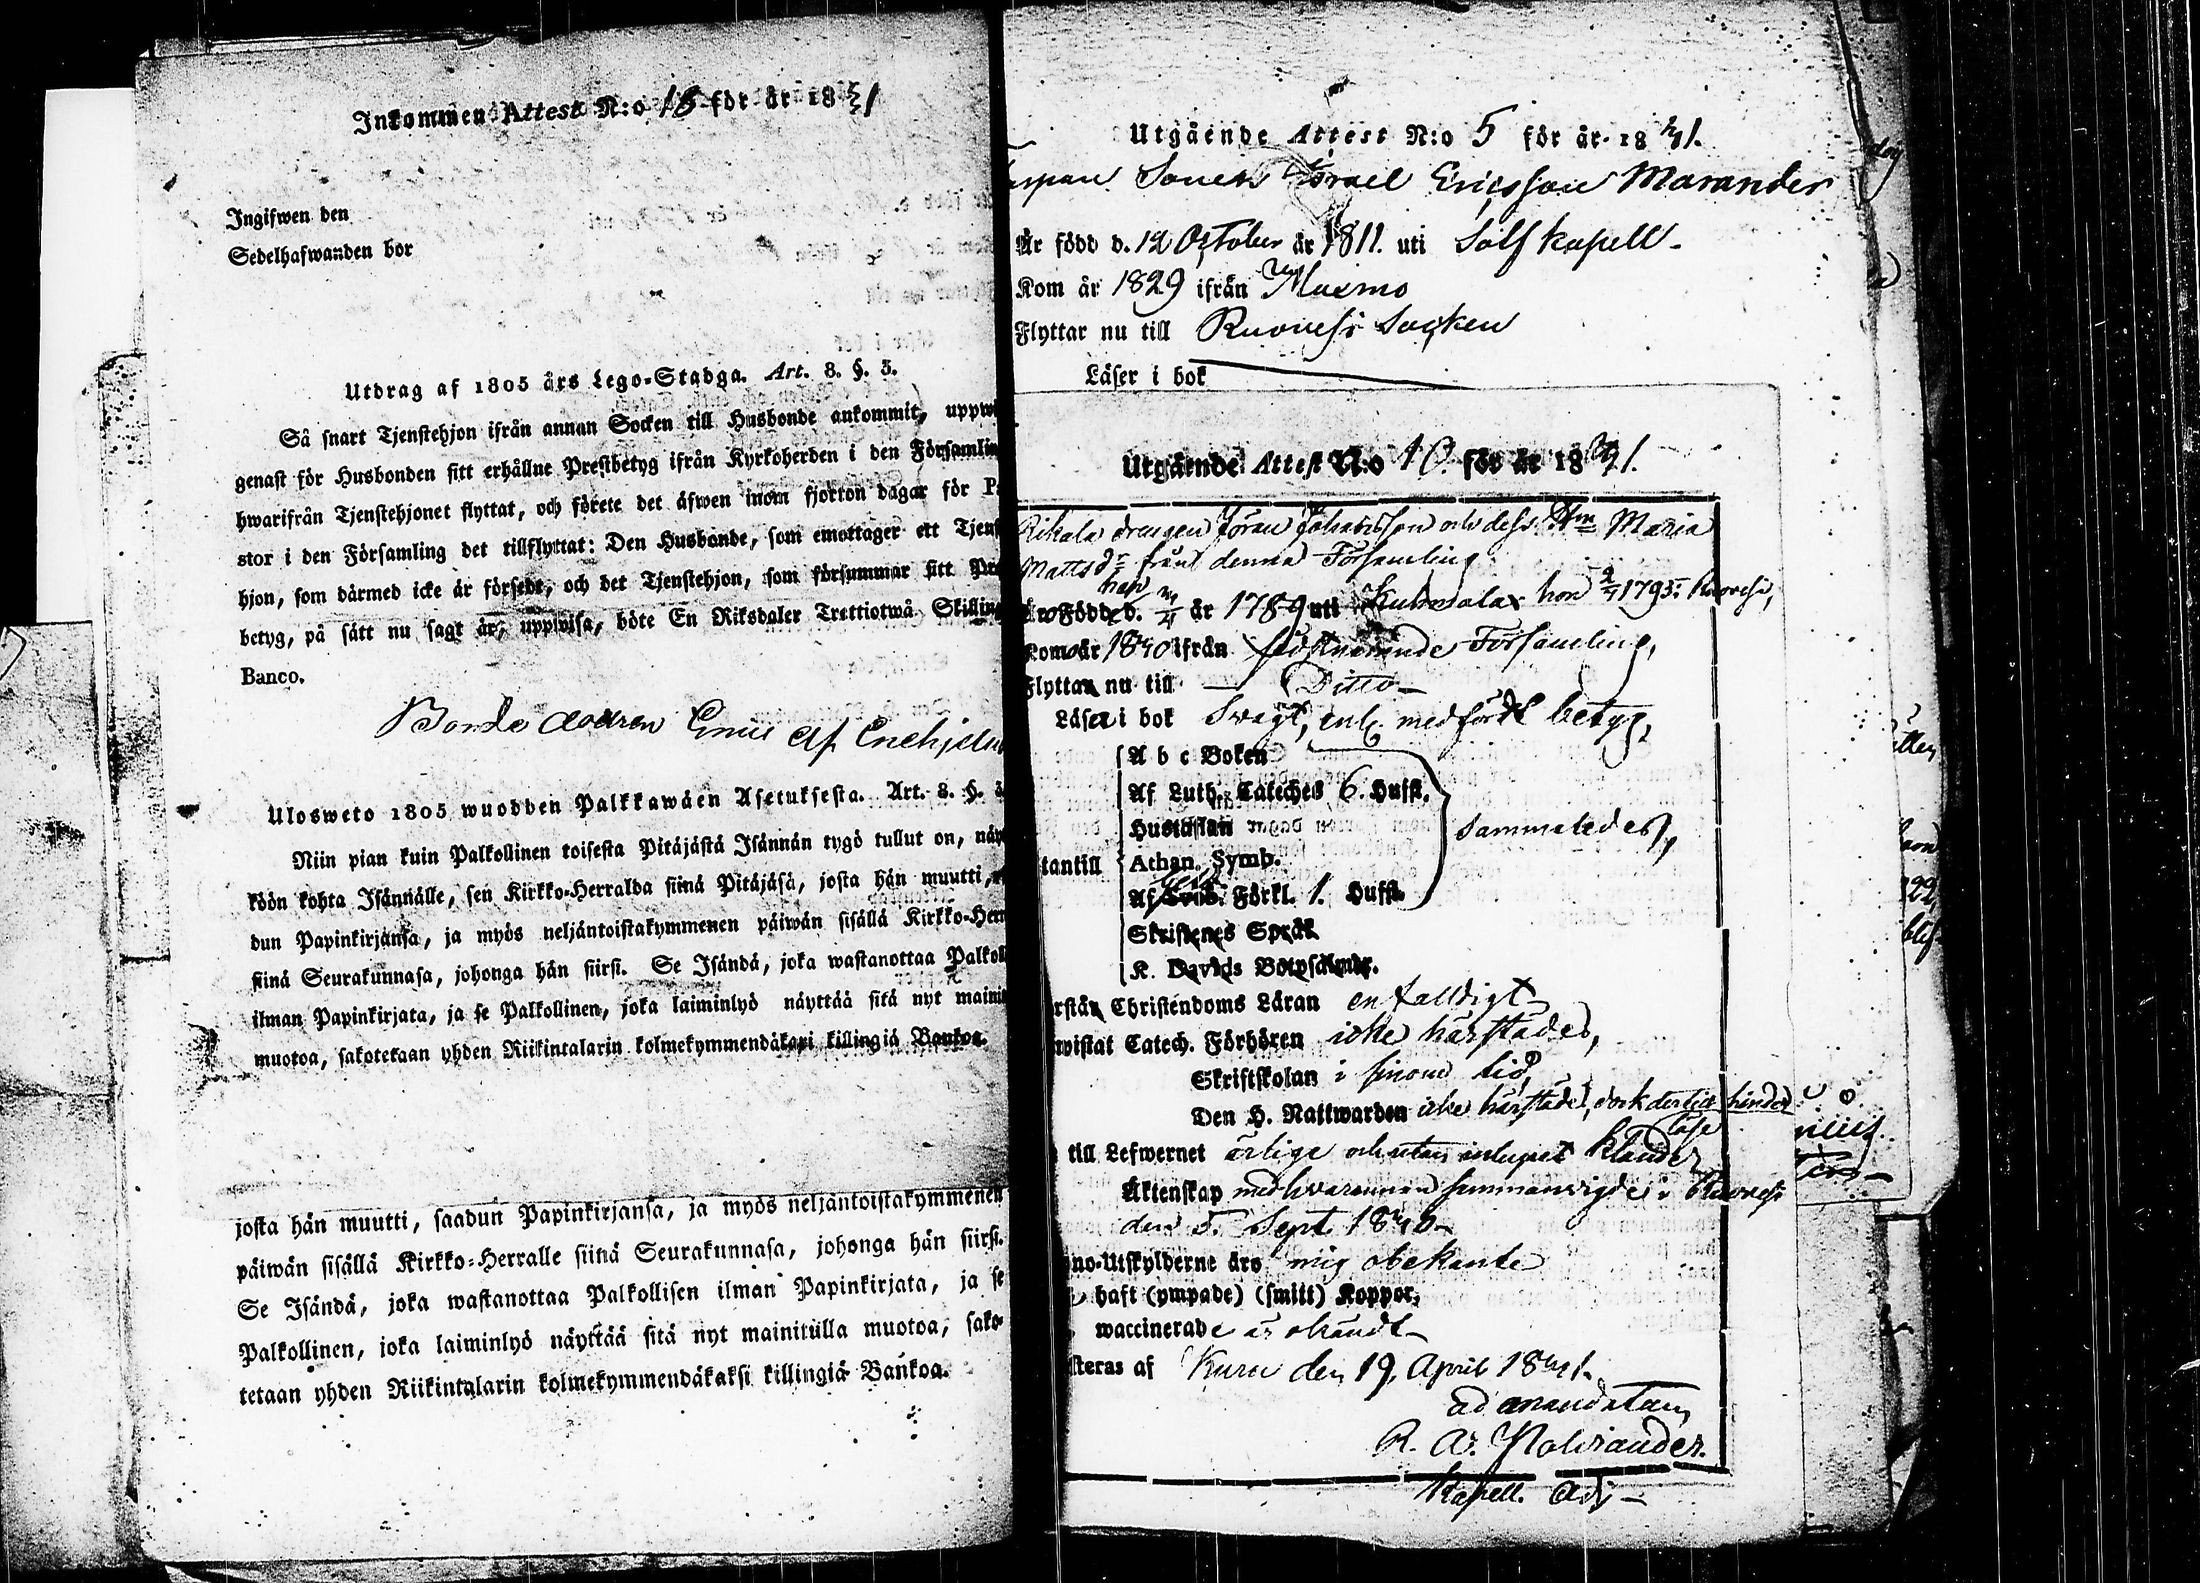 Inkommen Attest N:o 16 för år 1841
Ingifwen den
Sedelhafwanden bor
Utdrag af 1805 års Lego-Stadga. Art. 8. §. 3.
Så snart Tjenstehjon ifrån annan Socken till Husbonde ankommit, uppwi
genast för Husbonden sitt erhållne Prestbetyg ifrån Kyrkoherden i den Församlin
hwarifrån Tjenstehjonet flyttat, och förete det äfwen inom fjorton dagar för Pa
stor i den Församling det tillflyttat: Den Husbonde, som emottager ett Tjens
hjon, som därmed icke är försedt, och det Tjenstehjon, som försummar sitt Pre
betyg, på sätt nu sagt är, uppwisa, böte En Riksdaler Trettiotwå Skilling
Banco.
Bonde Emil af Enehjelm
Ulosweto 1805 wuodden Palkkawäen Asetuksesta. Art. 8. §. 3
Niin pian kuin Palkollinen toisesta Pitäjästä Isännän tygö tullut on, näy
köön kohta Isännälle, sen Kirkko-Herralda siinä Pitäjäsä, josta hän muutti,
dun Papinkirjansa, ja myös neljäntoistakymmenen päiwän sisällä Kirkko-Herr
siinä Seurakunnasa, johonga hän siirsi. Se Isändä, joka wastanottaa Palkoll
ilman Papinkirjata, ja se Palkollinen, joka laiminlyö näyttää sitä nyt maini
muotoa, sakotetaan yhden Riikintalarin kolmekymmendäkaxi killingiä Bankoa.
josta hän muutti, saadun Papinkirjansa, ja myös neljäntoistakymmenen
päiwän sisällä Kirkko-Herralle siinä Seurakunnasa, johonga hän siirsi.
Se Isändä, joka wastanottaa Palkollisen ilman Papinkirjata, ja se
Palkollinen, joka laiminlyö näyttää sitä nyt mainitulla muotoa, sako-
tetaan yhden Riikintalarin kolmekymmendäkaksi killingiä Bankoa.
Utgående Attest N:o 5 för år 1841.
Sonen Israel Ericsson Marander
Är född d. 12 October år 1811. uti Solf kapell
Kom år 1829 ifrån Maxmo
Flyttar nu till Ruovesi Socken
Läser i bok
Utgående Attest N:o 10 för år 1841.
drängen Göran Johansson och dess Hu Maria
Mattsdr från denna Församling
han
Född d. år 1789 uti Kuhmalax hon 1795 i Ruovesi,
Kom år 1840 ifrån sistnämnde Församling,
Flyttar nu till Ditto
Läser i bok Svagt, enl. medfördt betyg,
A b c Boken
Af Luth. Cateches 6. Hufst.
Hustaflan
Sammaledes,
tantill Athan. Symb.
Af Förkl. 1. Hufst.
Skriftenes Språk
K. Davids Botpsalmer.
rstår Christendoms Läran enfaldigt
wistat Catech. Förhören icke härstädes,
Skriftskolan i sinom tid
Den H. Nattwarden icke härstädes, dock dertill hinder
lösa
till Lefwernet ärlige och utan intupet klander
Äktenskap med hvarannan sammanvigde i Ruovesi
den 5. Sept 1840
no-Utskylderne äro mig obekante
haft (ympade) (smitt) Koppor,
waccinerade är okändt
steras af Kuru den 19 April 1841.
ad mandatum
Kapell. Adj